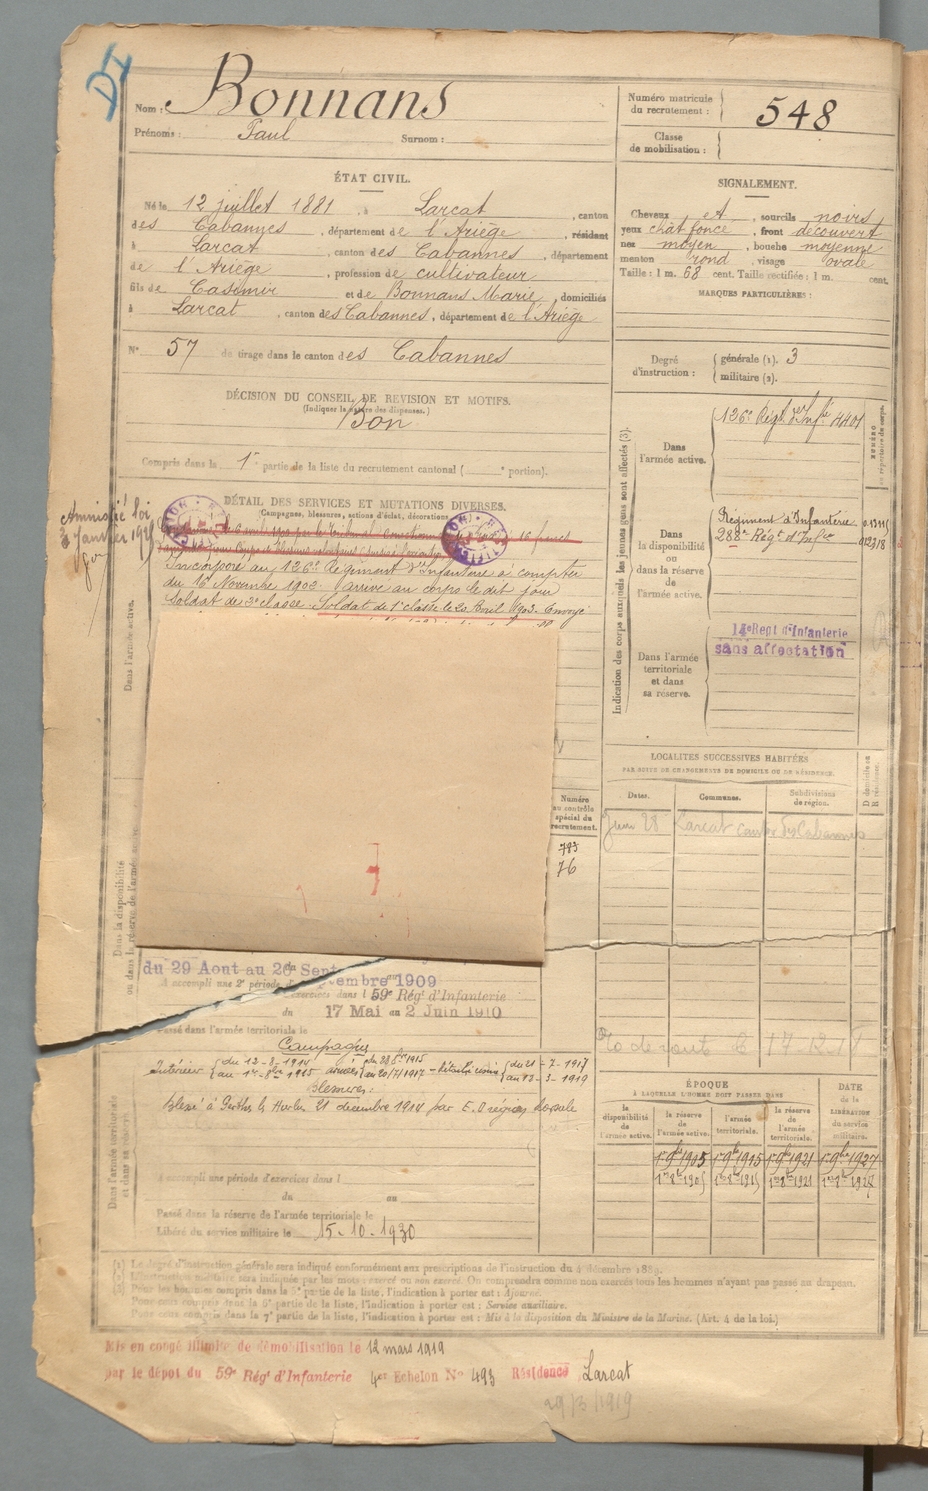 DI
Nom : Bonnans
Prénoms : Paul Surnom :
Numéro matricule
du recrutement : 548
Classe
de mobilisation :
ÉTAT CIVIL.
Né le 12 juillet 1881, à Larcat, canton
des Cabannes, département de l'Ariège, résidant
à Larcat, canton des Cabannes, département
de l'Ariège, profession de cultivateur
fils de Casimir et de Bonnans Marie, domiciliés
à Larcat, canton des Cabannes, département de l'Ariège
N° 57 de tirage dans le canton des Cabannes
SIGNALEMENT.
Cheveux et, sourcils noirs
yeux chat foncé, front découvert
nez moyen, bouche moyenne
menton rond, visage ovale
Taille : 1 m. 68 cent. Taille rectifiée : 1 m. cent.
MARQUES PARTICULIÈRES :
Degré
d'instruction :
générale (1). 3
militaire (2).
DÉCISION DU CONSEIL DE REVISION ET MOTIFS.
(Indiquer la nature des dispenses.)
Bon
Compris dans la 1re partie de la liste du recrutement cantonal ( ° portion).
DÉTAIL DES SERVICES ET MUTATIONS DIVERSES.
(Campagnes, blessures, actions d'éclat, décorations
Amnistié loi
3 Janvier 1925
16 francs
Incorporé au 126e Régiment d'Infanterie à compter
du 16 Novembre 1902 arrivé au corps le dit jour
Soldat de 2e classe. Soldat de 1e classe le 20 Avril 1903. Envoyé
Indication des corps auxquels les jeunes gens sont affectés (3).
Dans
l'armée active.
126e Régt d'Infie 4401
NUMÉRO
au répertoire du corps.
Dans
la disponibilité
ou
dans la réserve
de
l'armée active.
Régiment d'Infanterie
288e Régt d'Infie 012318
Dans l'armée
territoriale
et dans
sa réserve.
14e Regt d'Infanterie
sans affectation
Dans l'armée active.
Dans la disponibilité
ou dans la réserve de l'armée active.
LOCALITÉS SUCCESSIVES HABITÉES
PAR SUITE DE CHANGEMENTS DE DOMICILE OU DE RÉSIDENCE.
Dates. Communes. Subdivisions
de région.
D domicile ou
R résidence.
Juin 28 Larcat canton des Cabannes
Numéro
au contrôle
spécial du
recrutement.
783
76
du 29 Aout au 20 Septembre 1909
A accompli une 2e période d'exercices dans l 59e Régt d'Infanterie
du 17 Mai au 2 Juin 1910
Passé dans l'armée territoriale le
Campagnes
Intérieur du 13-8-1914
armées
au 20/7/1917 du 21-7-1917
au 13-3-1919
Blessures :
Blessé à Perthes les Hurlus 21 décembre 1914 par E. O région dorsale
Dans l'armée territoriale
et dans sa réserve.
A accompli une période d'exercices dans l
du au
Passé dans la réserve de l'armée territoriale le
Libéré du service militaire le 15-10-1930
ÉPOQUE
À LAQUELLE L'HOMME DOIT PASSER DANS
la
disponibilité
de
l'armée active.
la réserve
de
l'armée active.
l'armée
territoriale.
la réserve
de
l'armée
territoriale.
DATE
de la
LIBÉRATION
du service
militaire.
1er 9bre 1905 1er 9bre 1915 1er 9bre 1921 1er 9bre 1927
(1) Le degré d'instruction générale sera indiqué conformément aux prescriptions de l'instruction du 4 décembre 1889.
(2) L'instruction militaire sera indiquée par les mots : exercé ou non exercé. On comprendra comme non exercés tous les hommes n'ayant pas passé au drapeau.
(3) Pour les hommes compris dans la 5e partie de la liste, l'indication à porter est : Ajourné.
Pour ceux compris dans la 6e partie de la liste, l'indication à porter est : Service auxiliaire.
Pour ceux compris dans la 7e partie de la liste, l'indication à porter est : Mis à la disposition du Ministre de la Marine. (Art. 4 de la loi.)
Mis en congé illimité de démobilisation le 12 mars 1919
par le dépôt du 59e Régt d'Infanterie 4er Echelon N° 493 Résidence Larcat
29/3/1919